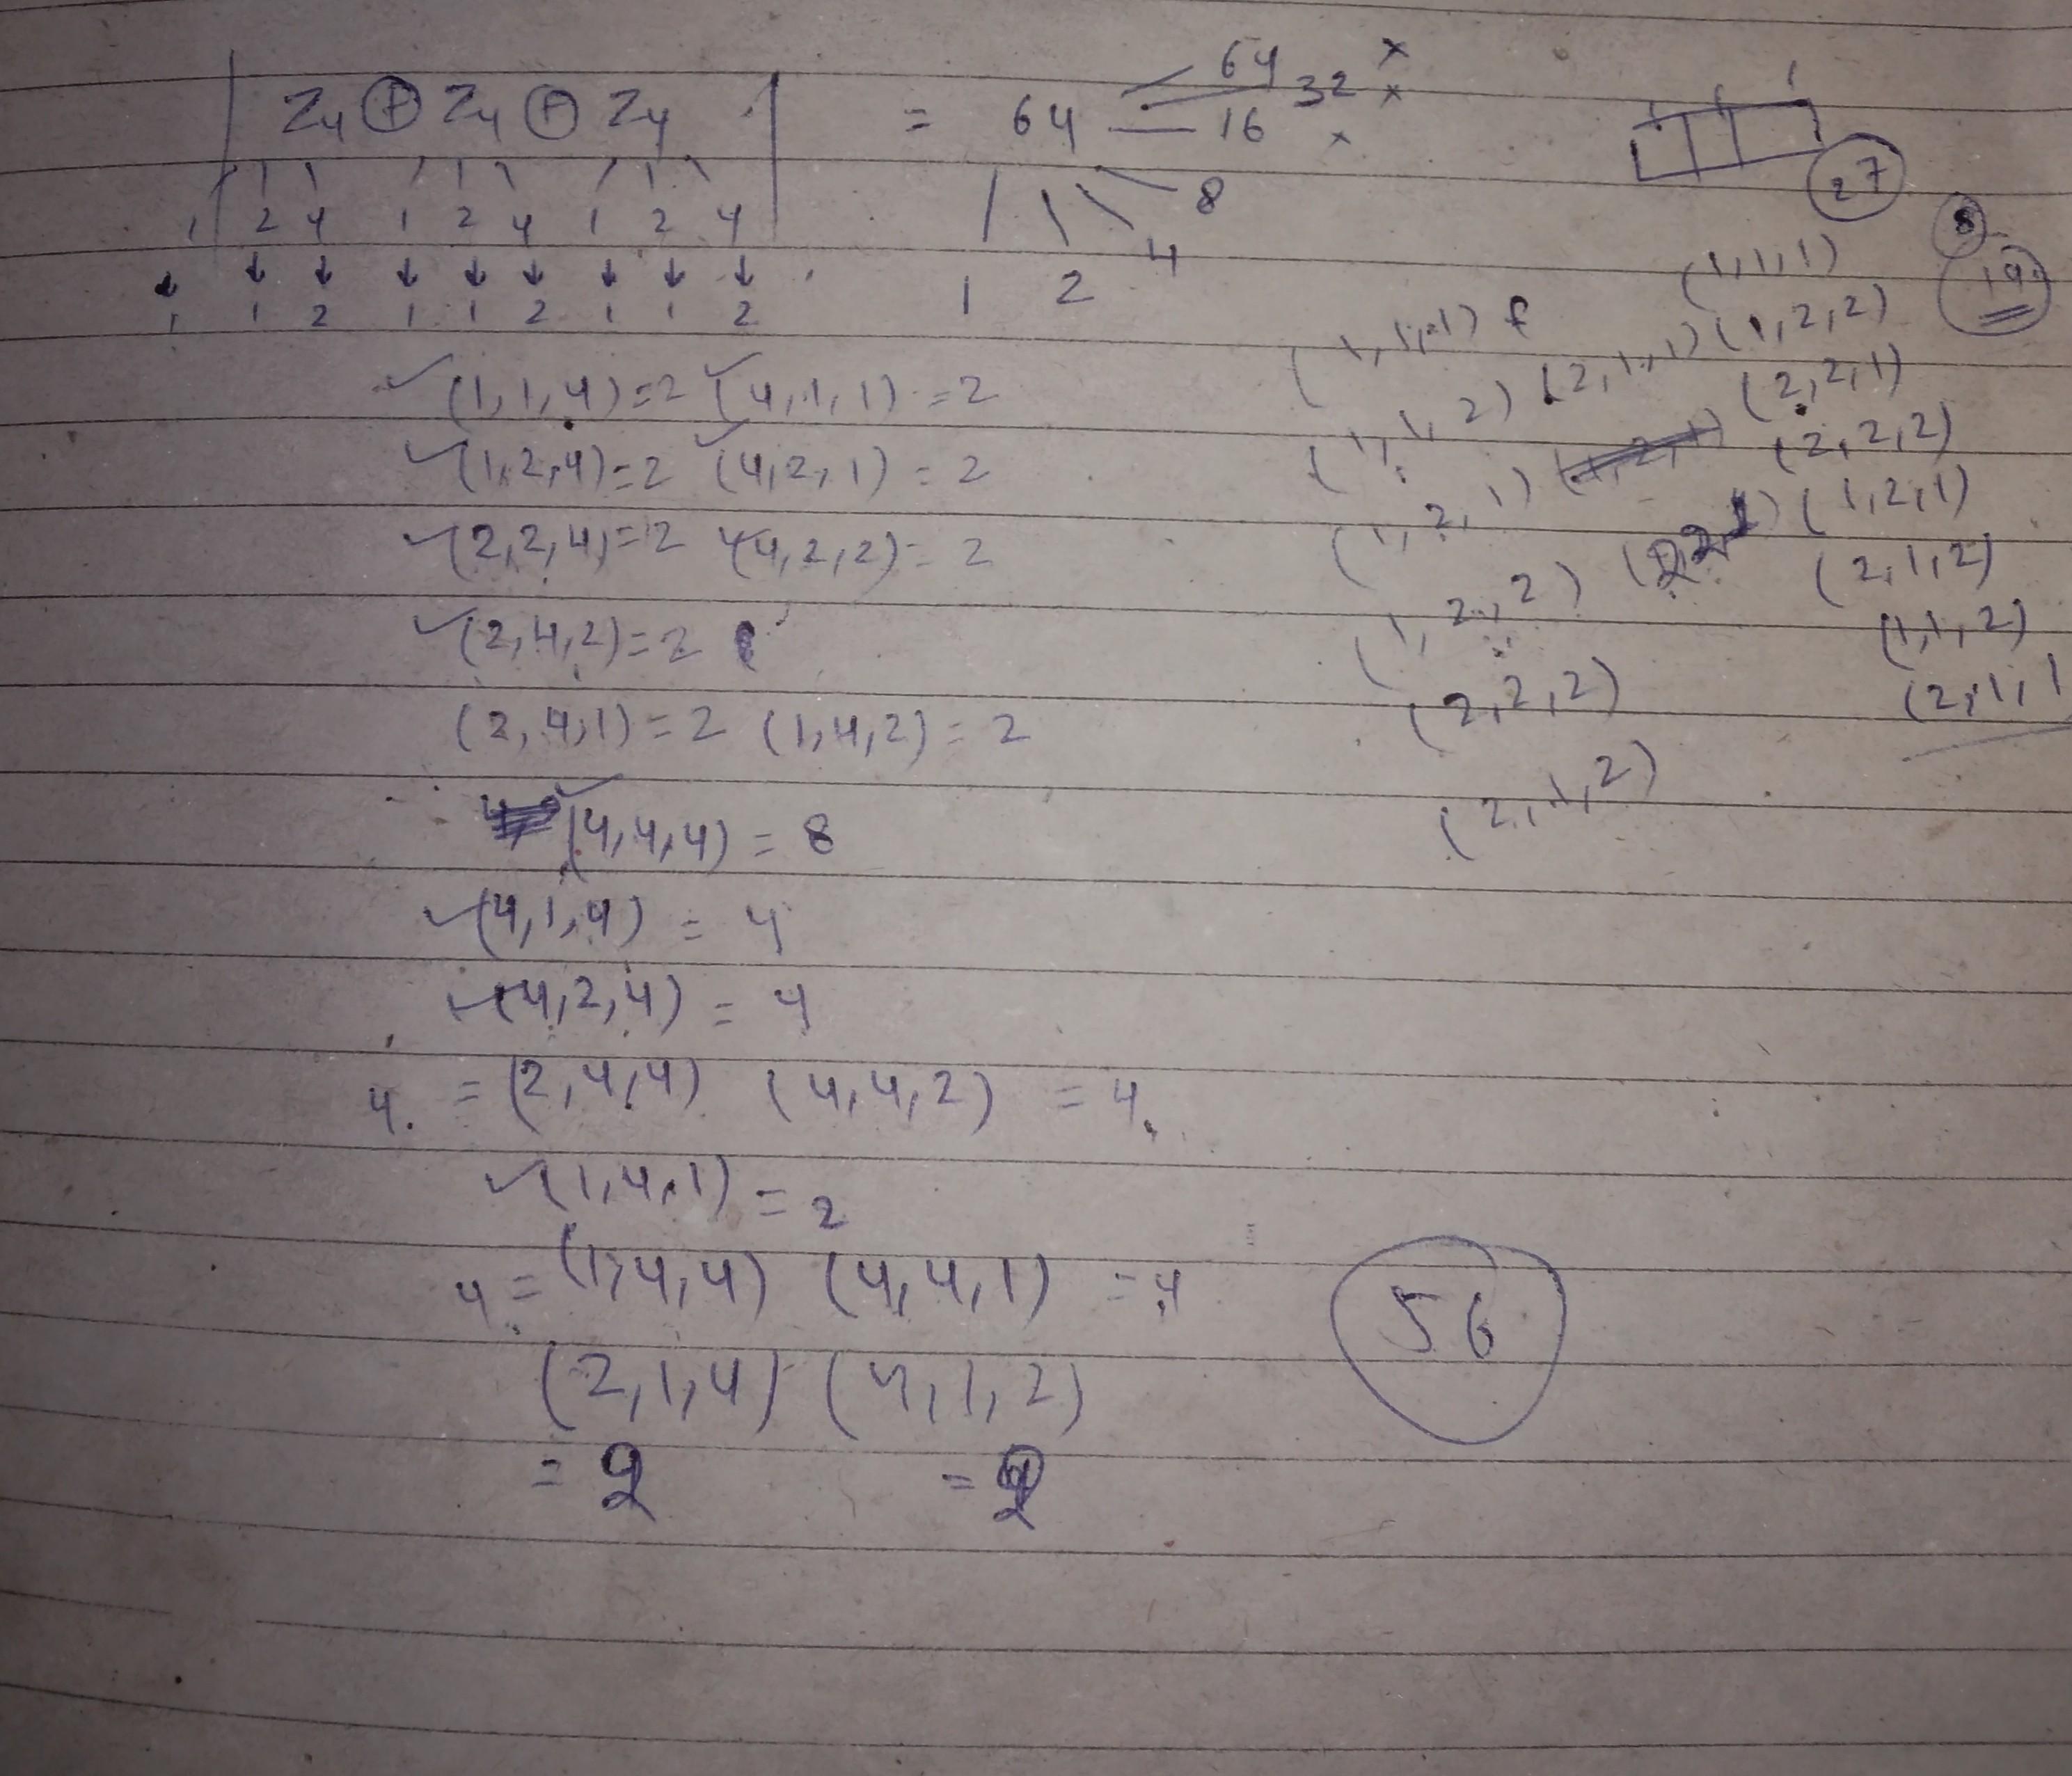 Z4 ⊕ Z4 ⊕ Z4 = 64 64 32 × ×
16 ×
27
8
1 2 4 1 2 4 1 2 4
8
19
↓ ↓ ↓ ↓ ↓ ↓ ↓ ↓ ↓
1 1 2 1 1 2 1 1 2
1 2 4
(1,1,4)=2 (4,1,1)=2
(1,2,4)=2 (4,2,1)=2
(2,2,4)=2 (4,2,2)=2
(2,4,2)=2
(2,4,1)=2 (1,4,2)=2
(4,4,4)=8
(4,1,4)=4
(4,2,4)=4
4.=(2,4,4) (4,4,2)=4.
(1,4,1)=2
4=(1,4,4) (4,4,1)=4
(2,1,4) (4,1,2)
=2 =2
(1,1,1)
(1,1,2) (2,1,1)
(1,2,1)
(1,2,2)
(2,2,2)
(2,1,2)
(1,1,1)
(1,2,2)
(2,2,1)
(2,2,2)
(1,2,1)
(2,1,2)
(1,1,2)
(2,1,1
56